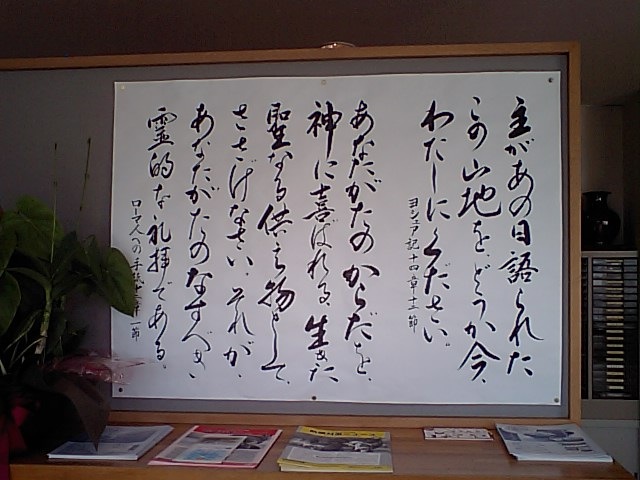 主があの日語られた
この山地を、どうか今、
わたしにください。
ヨシュア記十四章十二節
あなたがたのからだを、
神に喜ばれる、生きた
聖なる供え物として、
ささげなさい。それが、
あなたがたのなすべき、
霊的な礼拝である。
ローマ人への手紙十二章一節